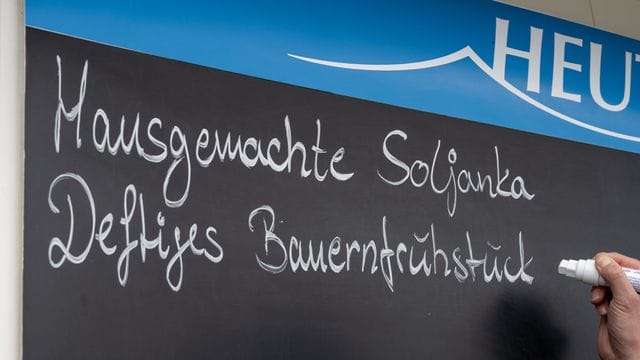 HEUT
Hausgemachte Soljanka
Deftiges Bauernfrühstück